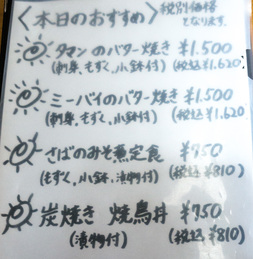 〈本日のおすすめ〉 税別価格となります。
タマンのバター焼き ¥1.500
(刺身、もずく、小鉢付) (税込¥1.620)
ミーバイのバター焼き ¥1.500
(刺身、もずく、小鉢付) (税込¥1.620)
さばのみそ煮定食 ¥750
(もずく、小鉢、漬物付) (税込¥810)
炭焼き 焼鳥丼 ¥750
(漬物付) (税込¥810)